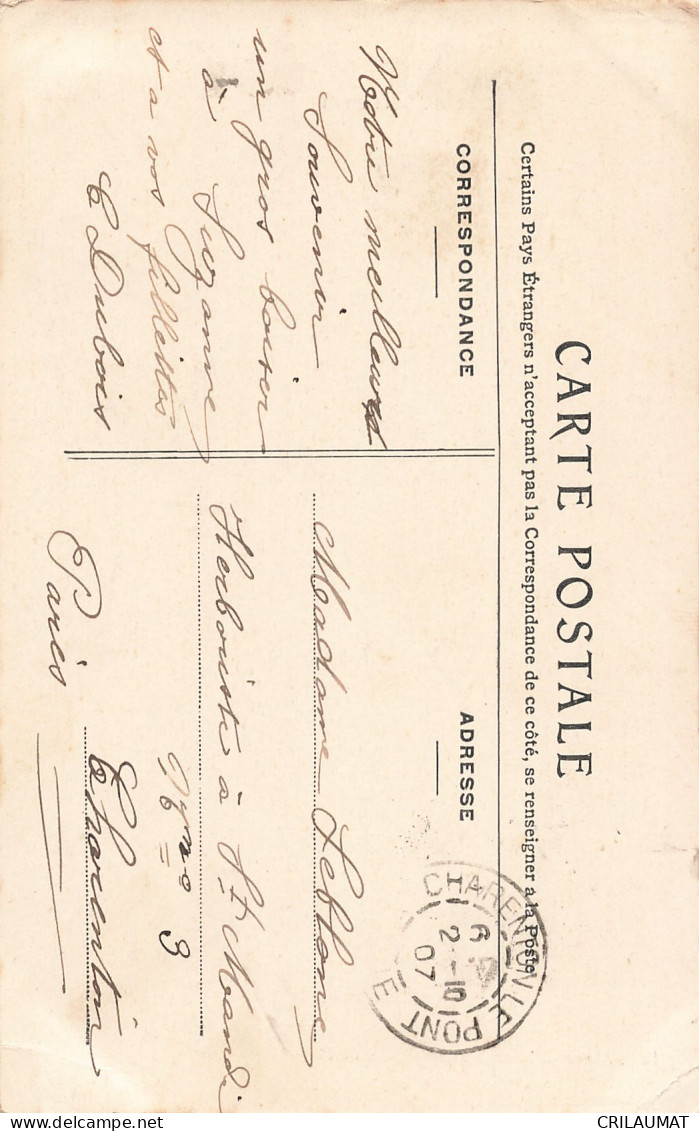 CARTE POSTALE
Certains Pays Étrangers n'acceptant pas la Correspondance de ce côté, se renseigner à la Poste
CORRESPONDANCE
Notre meilleurs
Souvenir
un gros baiser
à Suzanne
et a vos fillettes
E Dubois
ADRESSE
Madame Leblanc
Herboriste à St Mandé
N 3
Charenton
Paris
CHARENTON LE PONT
07
CRILAUMAT